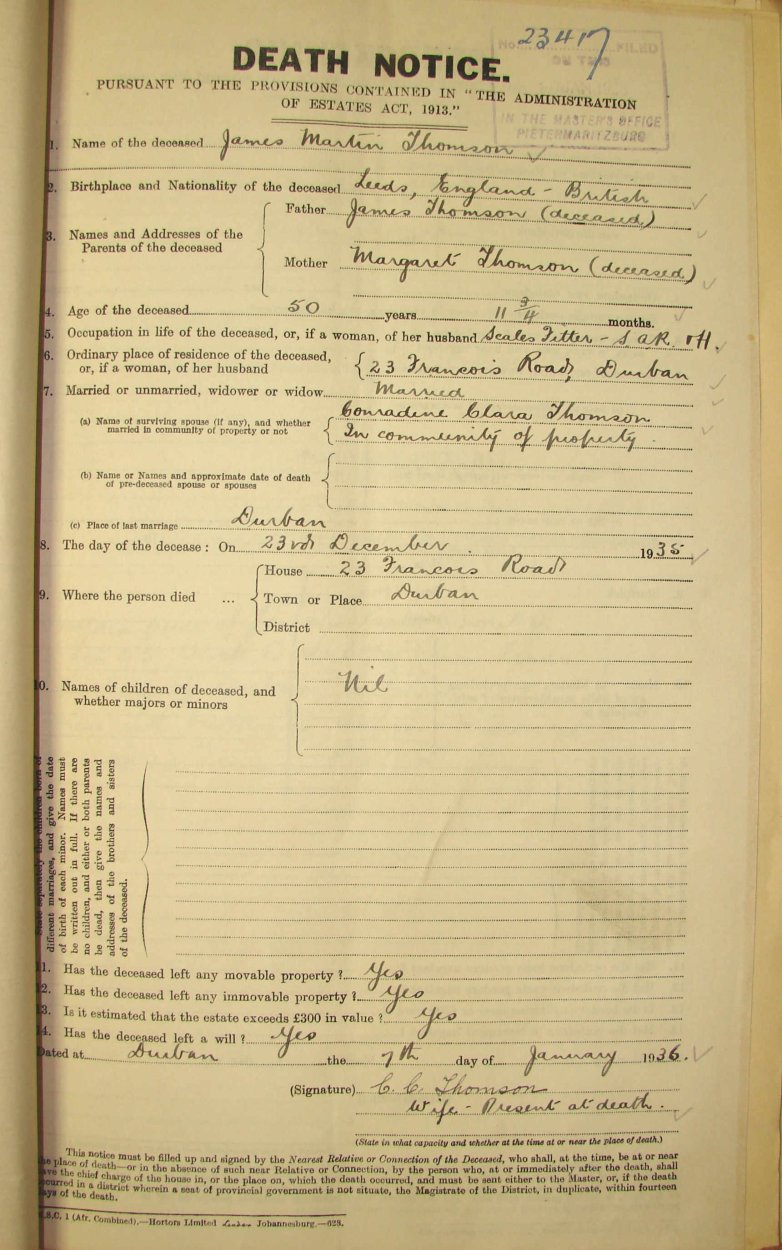 23417
No. FILED
IN THE MASTER'S OFFICE
PIETERMARITZBURG
DEATH NOTICE.
PURSUANT TO THE PROVISIONS CONTAINED IN "THE ADMINISTRATION
OF ESTATES ACT, 1913."
1. Name of the deceased James Martin Thomson
2. Birthplace and Nationality of the deceased Leeds, England - British
3. Names and Addresses of the
Parents of the deceased
Father James Thomson (deceased)
Mother Margaret Thomson (deceased)
4. Age of the deceased 50 years 11 3/4 months.
5. Occupation in life of the deceased, or, if a woman, of her husband Scales Fitter - S A R. & H.
6. Ordinary place of residence of the deceased,
or, if a woman, of her husband
23 Francois Road, Durban
7. Married or unmarried, widower or widow Married
(a) Name of surviving spouse (if any), and whether
married in community of property or not
Conradene Clara Thomson
In community of property.
(b) Name or Names and approximate date of death
of pre-deceased spouse or spouses
(c) Place of last marriage Durban
8. The day of the decease: On 23rd December 1935
9. Where the person died ...
House 23 Francois Road
Town or Place Durban
District
0. Names of children of deceased, and
whether majors or minors
Nil
different marriages, and give the date
of birth of each minor. Names must
be written out in full. If there are
no children, and either or both parents
be dead, then give the names and
addresses of the brothers and sisters
of the deceased.
1. Has the deceased left any movable property? Yes
2. Has the deceased left any immovable property? Yes
3. Is it estimated that the estate exceeds £300 in value? Yes
4. Has the deceased left a will? Yes
Dated at Durban the 7th day of January 1936.
(Signature) C. C. Thomson
Wife - Present at death.
(State in what capacity and whether at the time at or near the place of death.)
This notice must be filled up and signed by the Nearest Relative or Connection of the Deceased, who shall, at the time, be at or near
the place of death—or in the absence of such near Relative or Connection, by the person who, at or immediately after the death, shall
have the chief charge of the house in, or the place on, which the death occurred, and must be sent either to the Master, or, if the death
occurred in a district wherein a seat of provincial government is not situate, the Magistrate of the District, in duplicate, within fourteen
days of the death.
S.C. 1 (Afr. Combined).—Hortors Limited Johannesburg.—628.